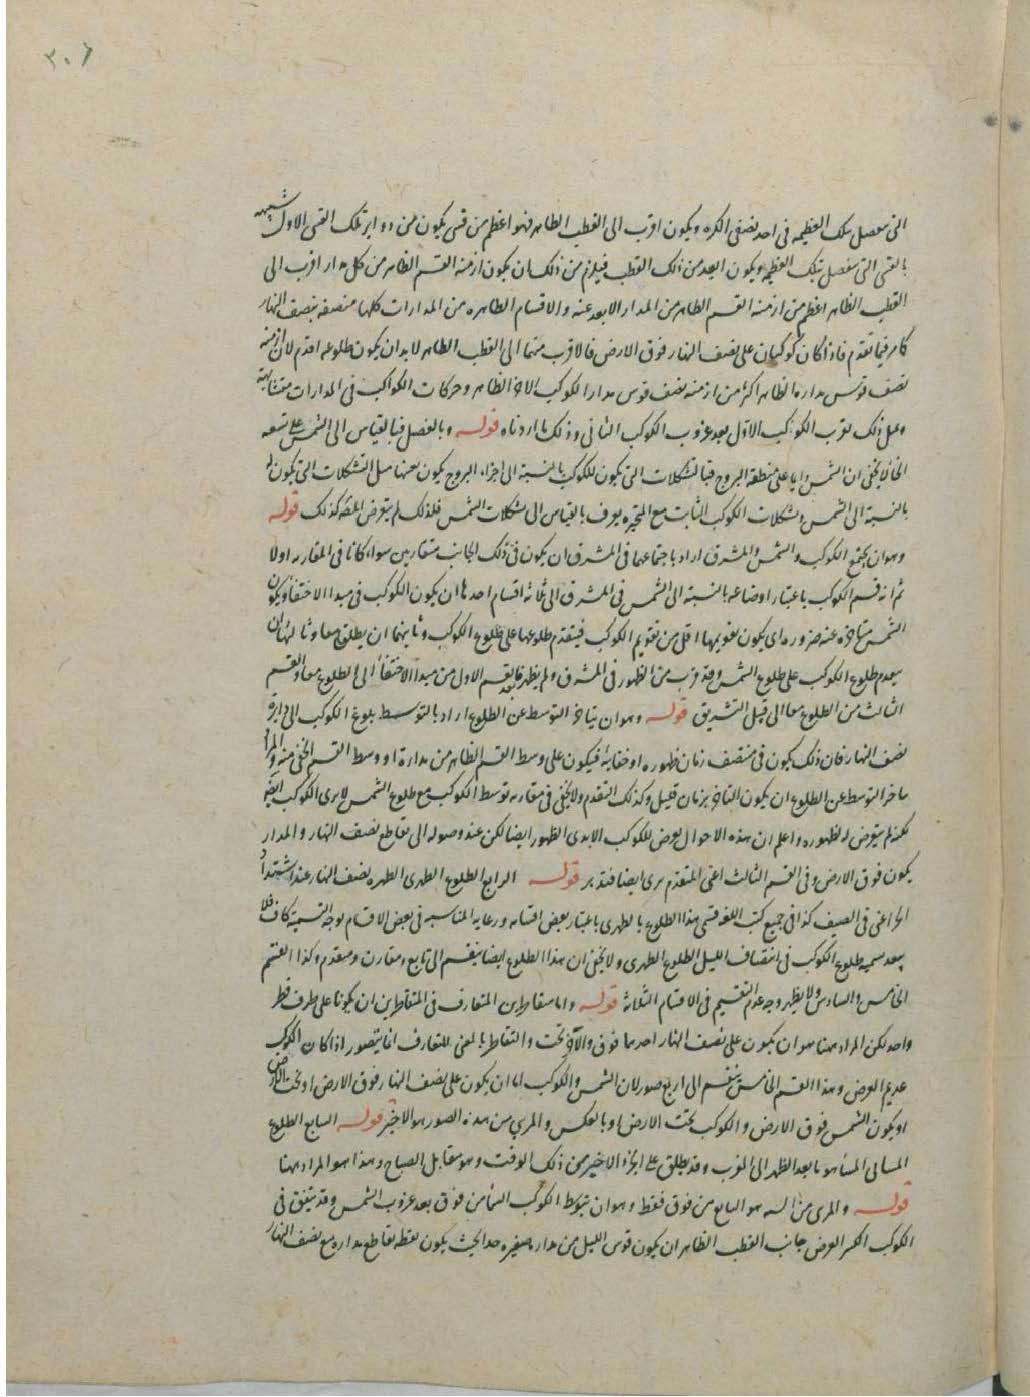 ٢٠٦
التى تفصل تلك العظيمه فى احد نصفى الكره ويكون اقرب الى القطب الظاهر فهو اعظم من قسى يكون من دواير تلك القسى الاول شبيهه
بالقسى التى تفصل بتلك العظيمه ويكون ابعد من ذلك القطب فيلزم من ذلك ان يكون ازمنه القسم الظاهر من كل مدار اقرب الى
القطب الظاهر اعظم من ازمنه القسم الظاهر من المدار الابعد عنه والاقسام الظاهره من المدارات كلها منصفه بنصف النهار
كما مر فيما تقدم فاذا كان كوكبان على نصف النهار فوق الارض فالاقرب منهما الى القطب الظاهر لا بد ان يكون طلوعه اقدم لان ازمنه
نصف قوس مداره الظاهر اكثر من ازمنه نصف قوس مدار الكوكب الاخر الظاهر وحركات الكواكب فى المدارات متشابهة
وعلى ذلك غرب الكوكب الاول بعد غروب الكوكب الثانى وذلك ما اردناه قوله وبالفصل فبالقياس الى الشمس على تسعه
انحا لا يخفى ان الشمس دايما على منطقة البروج فبالتشكلات التى يكون للكوكب بالنسبة الى اجزاء البروج يكون بعنها مثل التشكلات التى يكون له
بالنسبة الى الشمس وتشكلات الكوكب الثابت مع المتحيره يعرف بالقياس الى تشكلات الشمس فلذلك لم يتعرض المصه كذلك قوله
وهو ان يجتمع الكوكب والشمس والمشرق اراد باجتماعهما فى المشرق ان يكون فى ذلك الجانب متقاربين سواء كانا فى المقاربه او لا
ثم انه قسم الكوكب باعتبار اوضاعه بالنسبة الى الشمس فى المشرق الى ثلاثه اقسام احدها ان يكون الكوكب فى مبدا الاختفا ويكون
الشمس متاخره عنه ضروره اى يكون تقويمها اقل من تقويم الكوكب فيتقدم طلوعها على طلوع الكوكب وثانيهما ان يطلع معا وثالثها ان
يتقدم طلوع الكوكب على طلوع الشمس وقد قرب من الظهور فى المشرق ولم يظهر بعد فالقسم الاول من مبدا الاختفا الى الطلوع معا والقسم
الثالث من الطلوع معا الى قبل التشريق قوله وهو ان يتاخر التوسط عن الطلوع اراد بالتوسط بلوغ الكوكب الى دايرة
نصف النهار فان ذلك يكون فى منتصف زمان ظهوره او خفايه فيكون على وسط القسم الظاهر من مداره او وسط القسم الخفى منه والمراد
بتاخر التوسط عن الطلوع ان يكون التاخر بزمان قليل وكذلك التقدم ولا يخفى فى مقارنه توسط الكوكب مع طلوع الشمس لا يرى الكوكب ايضا
لكنه لم يتعرض له لظهوره واعلم ان هذه الاحوال يعرض للكوكب الابدى الظهور ايضا لكن عند وصوله الى تقاطع نصف النهار والمدار
يكون فوق الارض وفى القسم الثالث اعنى المتقدم يرى ايضا فتدبر قوله الرابع الطلوع الظهرى الظهره نصف النهار عند اشتداد
الحر اعنى فى الصيف كذا فى جميع كتب اللغه فتسمى هذا الطلوع بالظهرى باعتبار بعض اقسامه ورعايه المناسبه فى بعض الاقسام لوجه التسمية كاف فلا
يبعد تسميه طلوع الكوكب فى انتصاف الليل الطلوع الظهرى ولا يخفى ان هذا الطلوع ايضا ينقسم الى تابع ومقارن ومتقدم وكذا القسم
الخامس والسادس ولا يظهر وجه عدم التقسيم فى الاقسام الثلاثة قوله واما متقاطرين المتعارف فى المتقاطرين ان يكونا على طرف قطر
واحد لكن المراد ههنا هو ان يكون على نصف النهار احدهما فوق والآخر تحت والتقاطر بالمعنى المتعارف انما يتصور اذا كان الكوكب
عديم العرض وهذا القسم الخامس ينقسم الى اربع صور لان الشمس والكوكب اما ان يكون على نصف النهار فوق الارض او تحت الارض
او يكون الشمس فوق الارض والكوكب تحت الارض او بالعكس والمرى من هذه الصور هو الاخير قوله السابع الطلوع
المسايى المسا هو ما بعد الظهر الى المغرب وقد يطلق على الجزء الاخير من ذلك الوقت وهو مقابل الصباح وهذا هو المراد ههنا
قوله والمرى من السه هو التابع من فوق فقط وهو ان يتوسط الكوكب السما من فوق بعد غروب الشمس وقد يتفق فى
الكوكب الكثير العرض جانب القطب الظاهر ان يكون قوس الليل من مداره صغيره جدا بحيث يكون نقطه تقاطع مداره مع نصف النهار